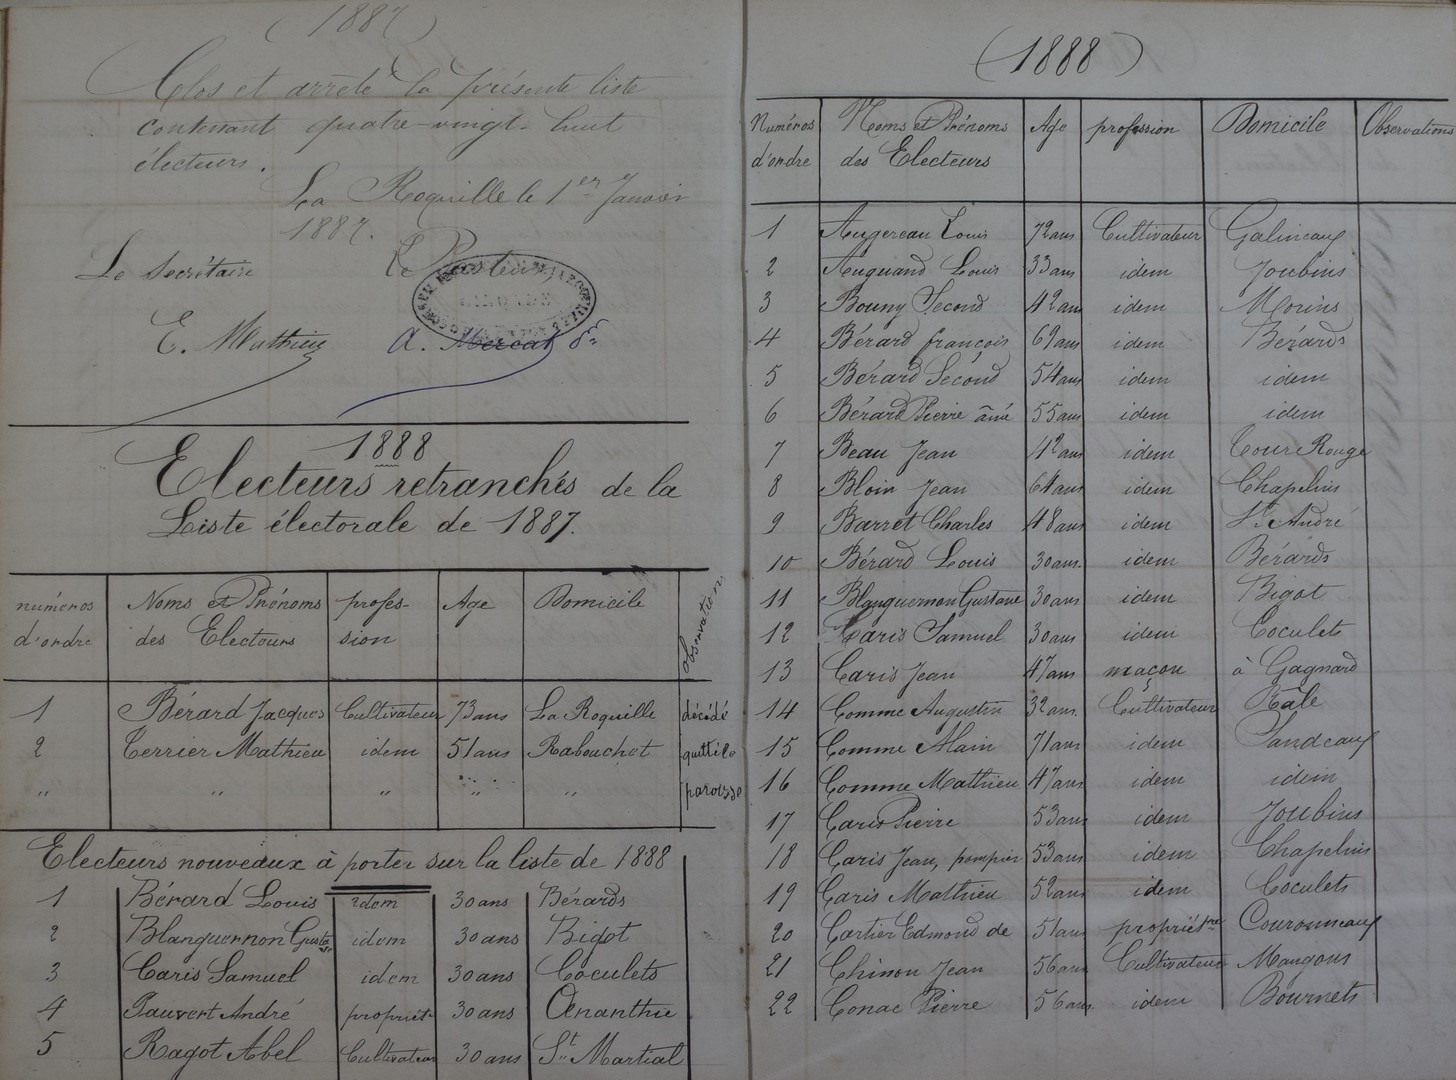 (1887)
Clos et arrêté la présente liste
contenant quatre-vingt-huit
électeurs.
La Roquille le 1er Janvier
1887.
Le Secrétaire
Le Pasteur,
E. Mathieu
A. Mercat
1888
Electeurs retranchés de la
Liste électorale de 1887.
numéros d'ordre | Noms et Prénoms des Electeurs | profession | Age | Domicile | observations
1 Bérard Jacques Cultivateur 73 ans La Roquille décédé
2 Terrier Mathieu idem 51 ans Rabouchet quitté la
" " " " " paroisse
Electeurs nouveaux à porter sur la liste de 1888
1 Bérard Louis idem 30 ans Bérards
2 Blanguernon Gustave idem 30 ans Bigot
3 Caris Samuel idem 30 ans Coculets
4 Pauvert André propriét. 30 ans Ananthie
5 Ragot Abel Cultivateur 30 ans St Martial
(1888)
Numéros d'ordre | Noms et Prénoms des Electeurs | Age | profession | Domicile | Observations
1 Augereau Louis 72 ans Cultivateur Galineaux
2 Auguand Louis 33 ans idem Joubins
3 Bouny Second 42 ans idem Morins
4 Bérard françois 69 ans idem Bérards
5 Bérard Second 54 ans idem idem
6 Bérard Pierre âiné 55 ans idem idem
7 Beau Jean 42 ans idem Tour Rouge
8 Bloin Jean 64 ans idem Chapelins
9 Barret Charles 48 ans idem St André
10 Bérard Louis 30 ans idem Bérards
11 Blanguernon Gustave 30 ans idem Bigot
12 Caris Samuel 30 ans idem Coculets
13 Caris Jean 47 ans maçon à Gagnard
14 Comme Augustin 32 ans Cultivateur Râle
15 Comme Alain 71 ans idem Pandeaux
16 Comme Mathieu 47 ans idem idem
17 Caris Pierre 53 ans idem Joubins
18 Caris Jean, pompier 53 ans idem Chapelins
19 Caris Mathieu 52 ans idem Coculets
20 Cartier Edmond de 51 ans propriétre Couronneaux
21 Chinon Jean 56 ans Cultivateur Maugons
22 Conac Pierre 56 ans idem Bournets